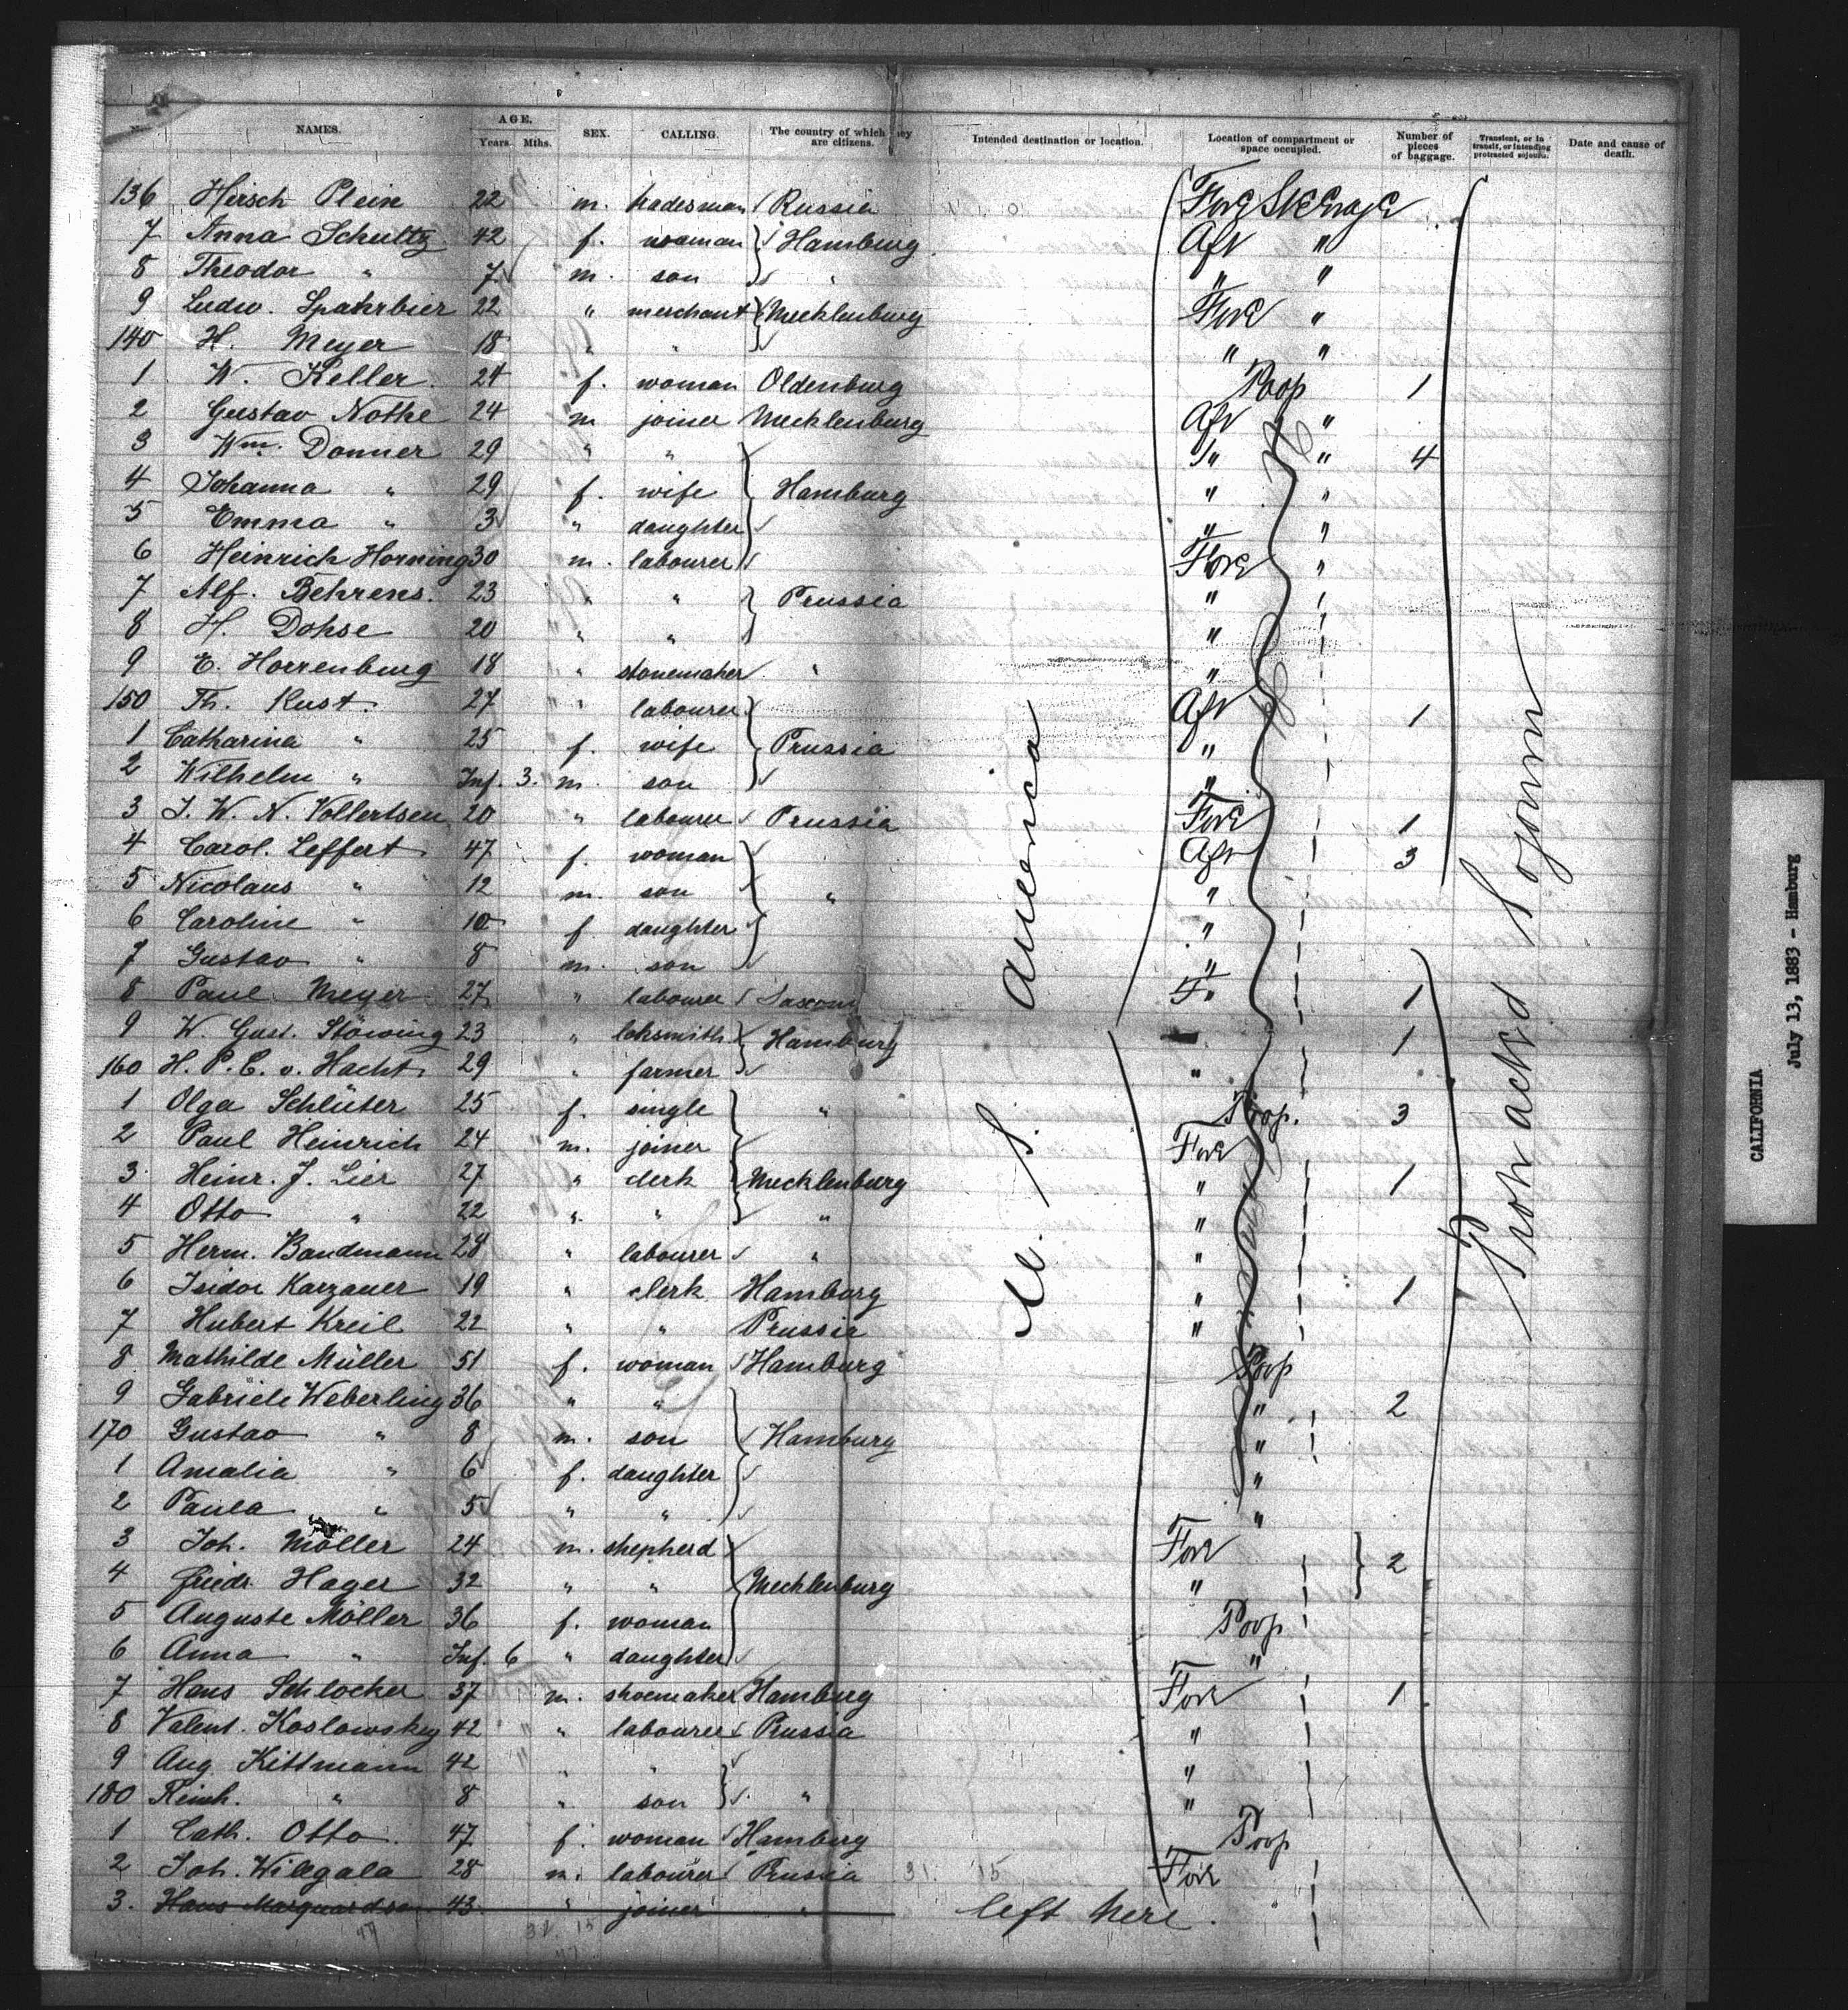 No. NAMES. AGE. Years Mths. SEX. CALLING. The country of which they are citizens. Intended destination or location. Location of compartment or space occupied. Number of pieces of baggage. Transient, or in transit, or intending protracted sojourn. Date and cause of death.
136 Hirsch Plein 22 m. tradesman Russia Fore Steerage
7 Anna Schultz 42 f. woman Hamburg Aft "
8 Theodor " 7 m. son " " "
9 Ludw. Spahrbier 22 " merchant Mecklenburg Fore "
140 H. Meyer 18 " " " "
1 W. Keller 24 f. woman Oldenburg Poop 1
2 Gustav Nothe 24 m joiner Mecklenburg Aft "
3 Wm. Donner 29 " " " " 4
4 Johanna " 29 f. wife Hamburg " "
5 Emma " 3 " daughter " "
6 Heinrich Horning 30 m. labourer Fore "
7 Alf. Behrens 23 " " Prussia "
8 H. Dohse 20 " " "
9 E. Horrenburg 18 " stonemaker " "
150 Th. Kust 27 " labourer Aft 1
1 Catharina " 25 f. wife Prussia "
2 Wilhelm " Inf. 3. m. son "
3 J. W. N. Vollertsen 20 " labourer Prussia Fore 1
4 Carol. Leffert 47 f. woman Aft 3
5 Nicolaus " 12 m. son " "
6 Caroline " 10 f. daughter "
7 Gustav " 8 m. son "
8 Paul Meyer 27 " labourer Saxony F " 1
9 W. Gust. Stöwing 23 " loksmith Hamburg 1
160 H. P. C. v. Hacht 29 " farmer "
1 Olga Schlüter 25 f. single " Poop. 3
2 Paul Heinrich 24 m. joiner Fore
3 Heinr. J. Lier 27 " clerk Mecklenburg " 1
4 Otto " 22 " " " "
5 Herm. Bandmann 28 " labourer " "
6 Isidor Karzauer 19 " clerk Hamburg " 1
7 Hubert Kreil 22 " " Prussia "
8 Mathilde Müller 51 f. woman Hamburg Poop
9 Gabriele Weberling 36 " " " 2
170 Gustav " 8 m. son Hamburg "
1 Amalia " 6 f. daughter "
2 Paula " 5 " " "
3 Joh. Möller 24 m. shepherd Fore 2
4 Friedr. Hager 32 " " Mecklenburg "
5 Auguste Möller 36 f. woman Poop
6 Anna " Inf. 6 " daughter "
7 Hans Schlocker 37 m. shoemaker Hamburg Fore 1
8 Valent. Koslowsky 42 " labourer Prussia "
9 Aug. Kittmann 42 " " "
180 Reinh. " 8 " son " "
1 Cath. Otto 47 f. woman Hamburg Poop
2 Joh. Willegala 28 m. labourer Prussia 31. 15 Fore
3. Hans Marquardsen 43 " joiner " left here.
U. S. America
Protracted Sojourn
CALIFORNIA
July 13, 1883 - Hamburg